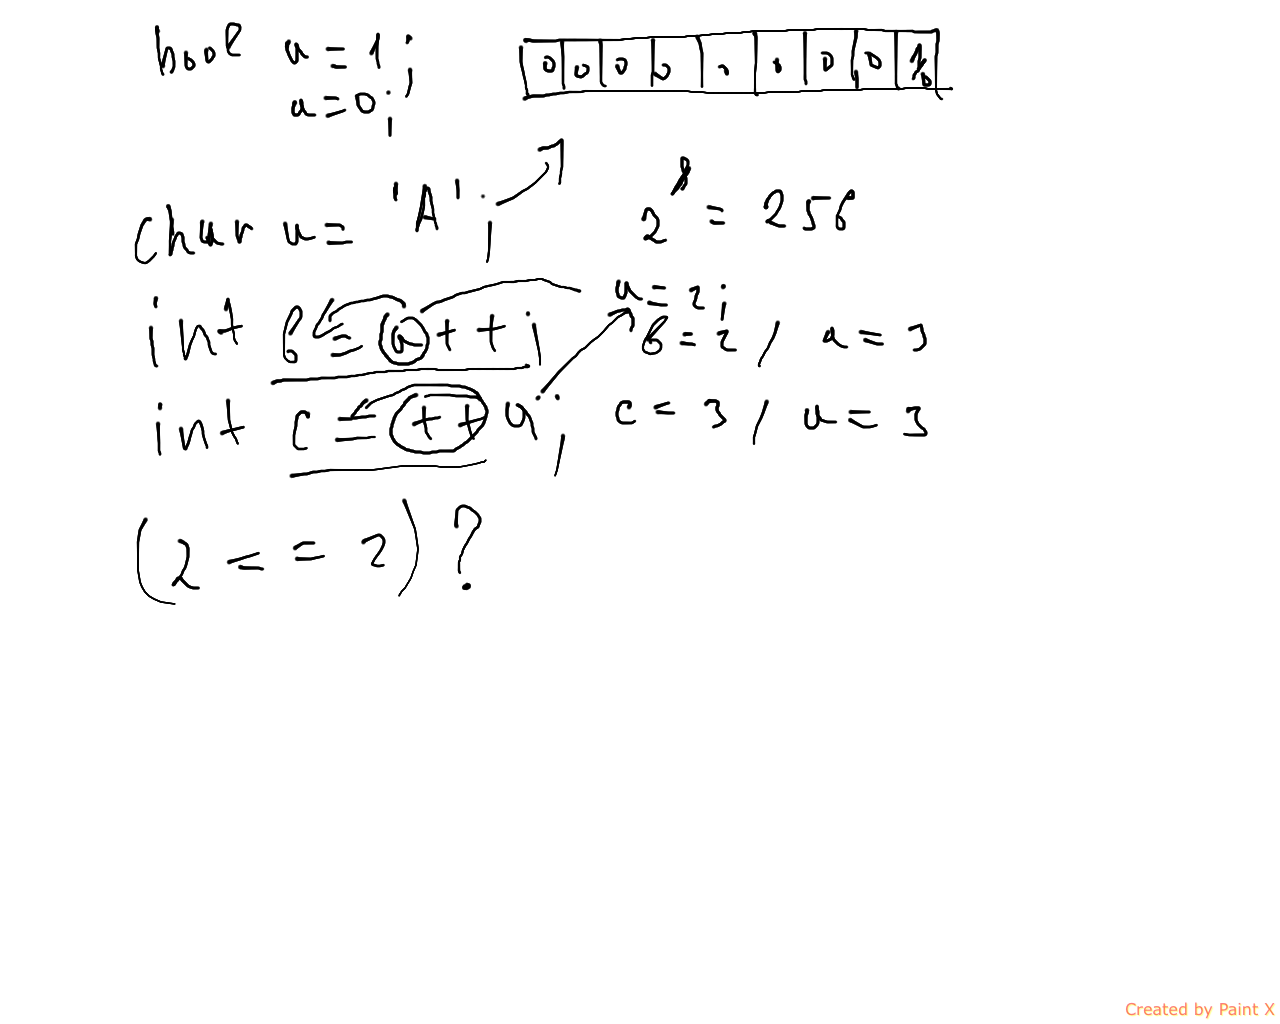 bool a = 1;
a = 0;
0 0 0 0 . . 0 0 1 0
char a = 'A';
2^8 = 256
int b = a++;
a = 2;
b = 2 / a = 3
int c = ++a;
c = 3 / a = 3
(2 == 2)?
Created by Paint X